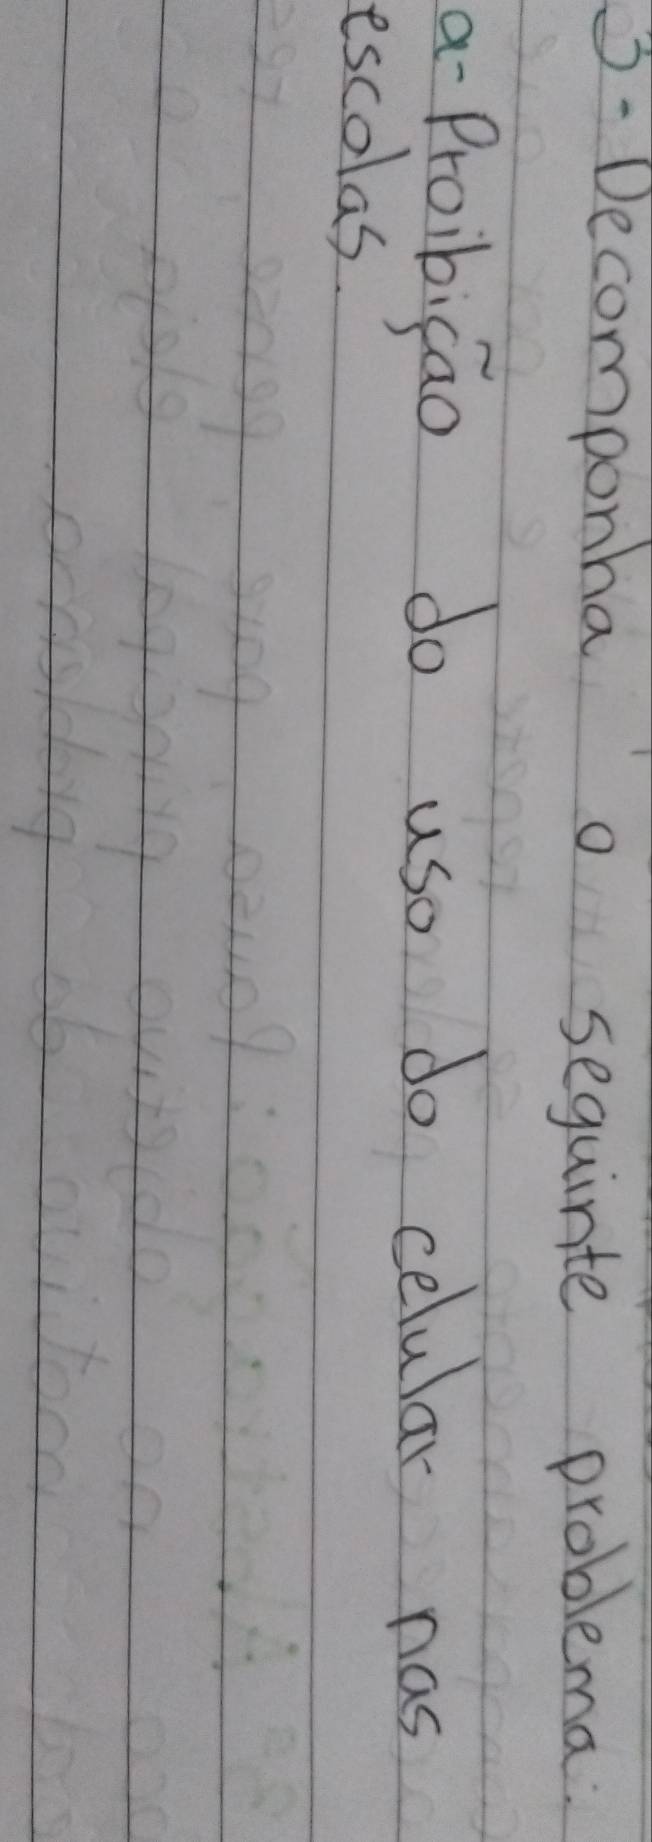 3- Decomponha o seguinte problema:
a- Proibição do uso do celular nas
escolas.